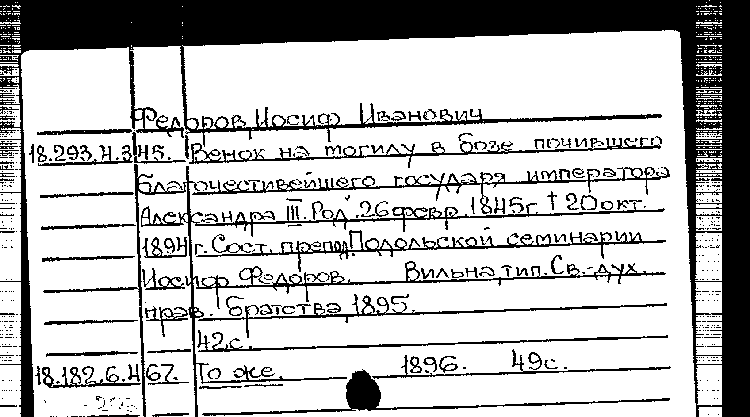 Федоров, Иосиф Иванович
18.293.4.345. Венок на могилу в бозе почившего
благочестивейшего государя императора
Александра III. Род. 26 февр. 1845г. † 20 окт.
1894 г. Сост. препод. Подольской семинарии
Иосиф Федоров. Вильна, тип. Св.-дух.
прав. братства, 1895.
42 с.
18.182.6.467. То же. 1896. 49 с.